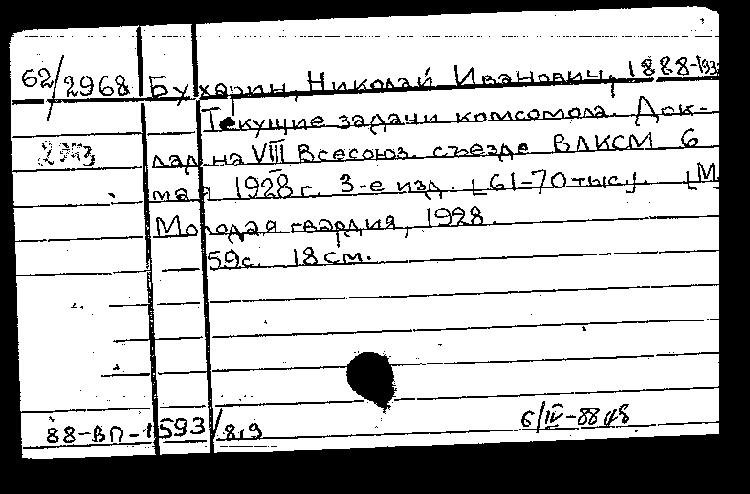 62/2968 Бухарин, Николай Иванович, 1888-193
Текущие задачи комсомола. Док-
лад на VIII Всесоюз. съезде ВЛКСМ 6
мая 1928 г. 3-е изд. [61-70 тыс.]. [М
Молодая гвардия, 1928.
59 с. 18 см.
88-ВП-1593/8,9
6/IV-88